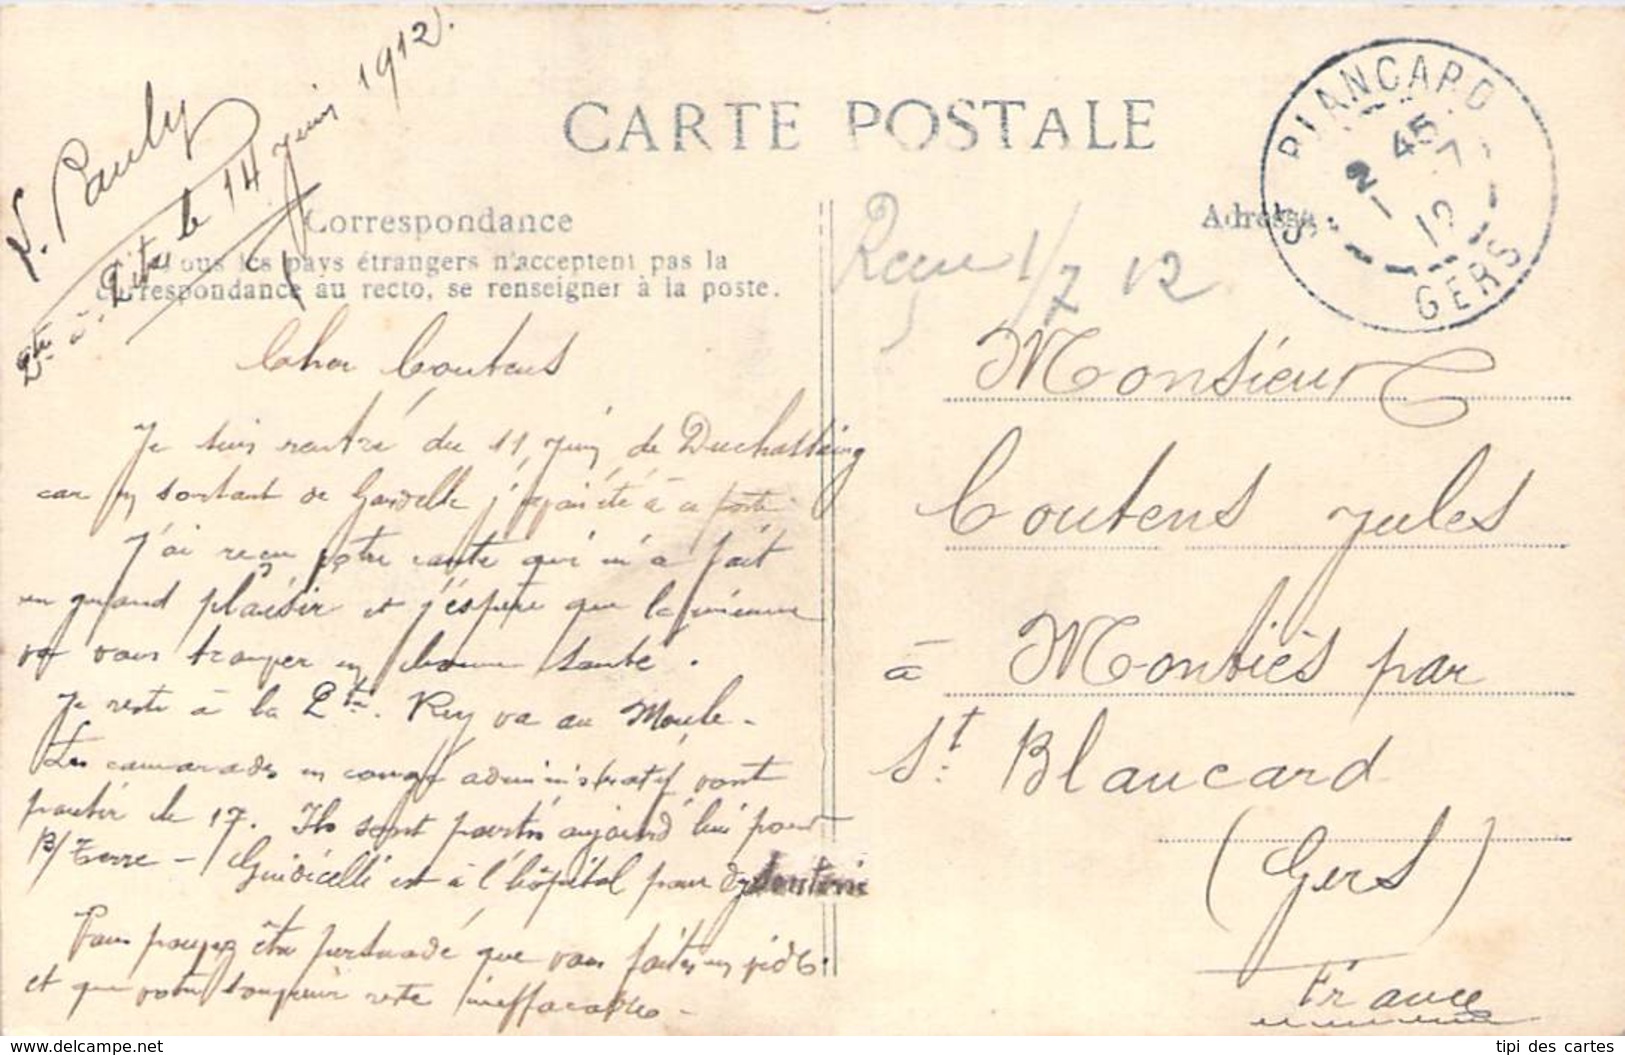 V. Pauly
Pte à Pitre le 14 Juin 1912.
CARTE POSTALE
Correspondance
Tous les pays étrangers n'acceptent pas la
correspondance au recto, se renseigner à la poste.
Adresse
Reçu 1/7 12
St BLANCARD
2 45
1 7
12
GERS
Cher Coutens
Je suis rentré du 11 Juin de Duchassaing
car en sortant de Gardelle j'ai été à ce poste
J'ai reçu votre carte qui m'a fait
un grand plaisir et j'espère que la mienne
va vous trouver en bonne santé.
Je reste à la Pte. Rey va au Moule -
Les camarades en congé administratif vont
partir le 17. Ils sont partis aujourd'hui pour
B/Terre - Guidicelli est à l'hôpital pour dysenterie
Vous pouvez être persuadé que vous faites un vide
et que votre souvenir reste ineffaçable -
Monsieur
Coutens Jules
à Montiès par
St. Blancard
(Gers)
France
tipi des cartes
www.delcampe.net